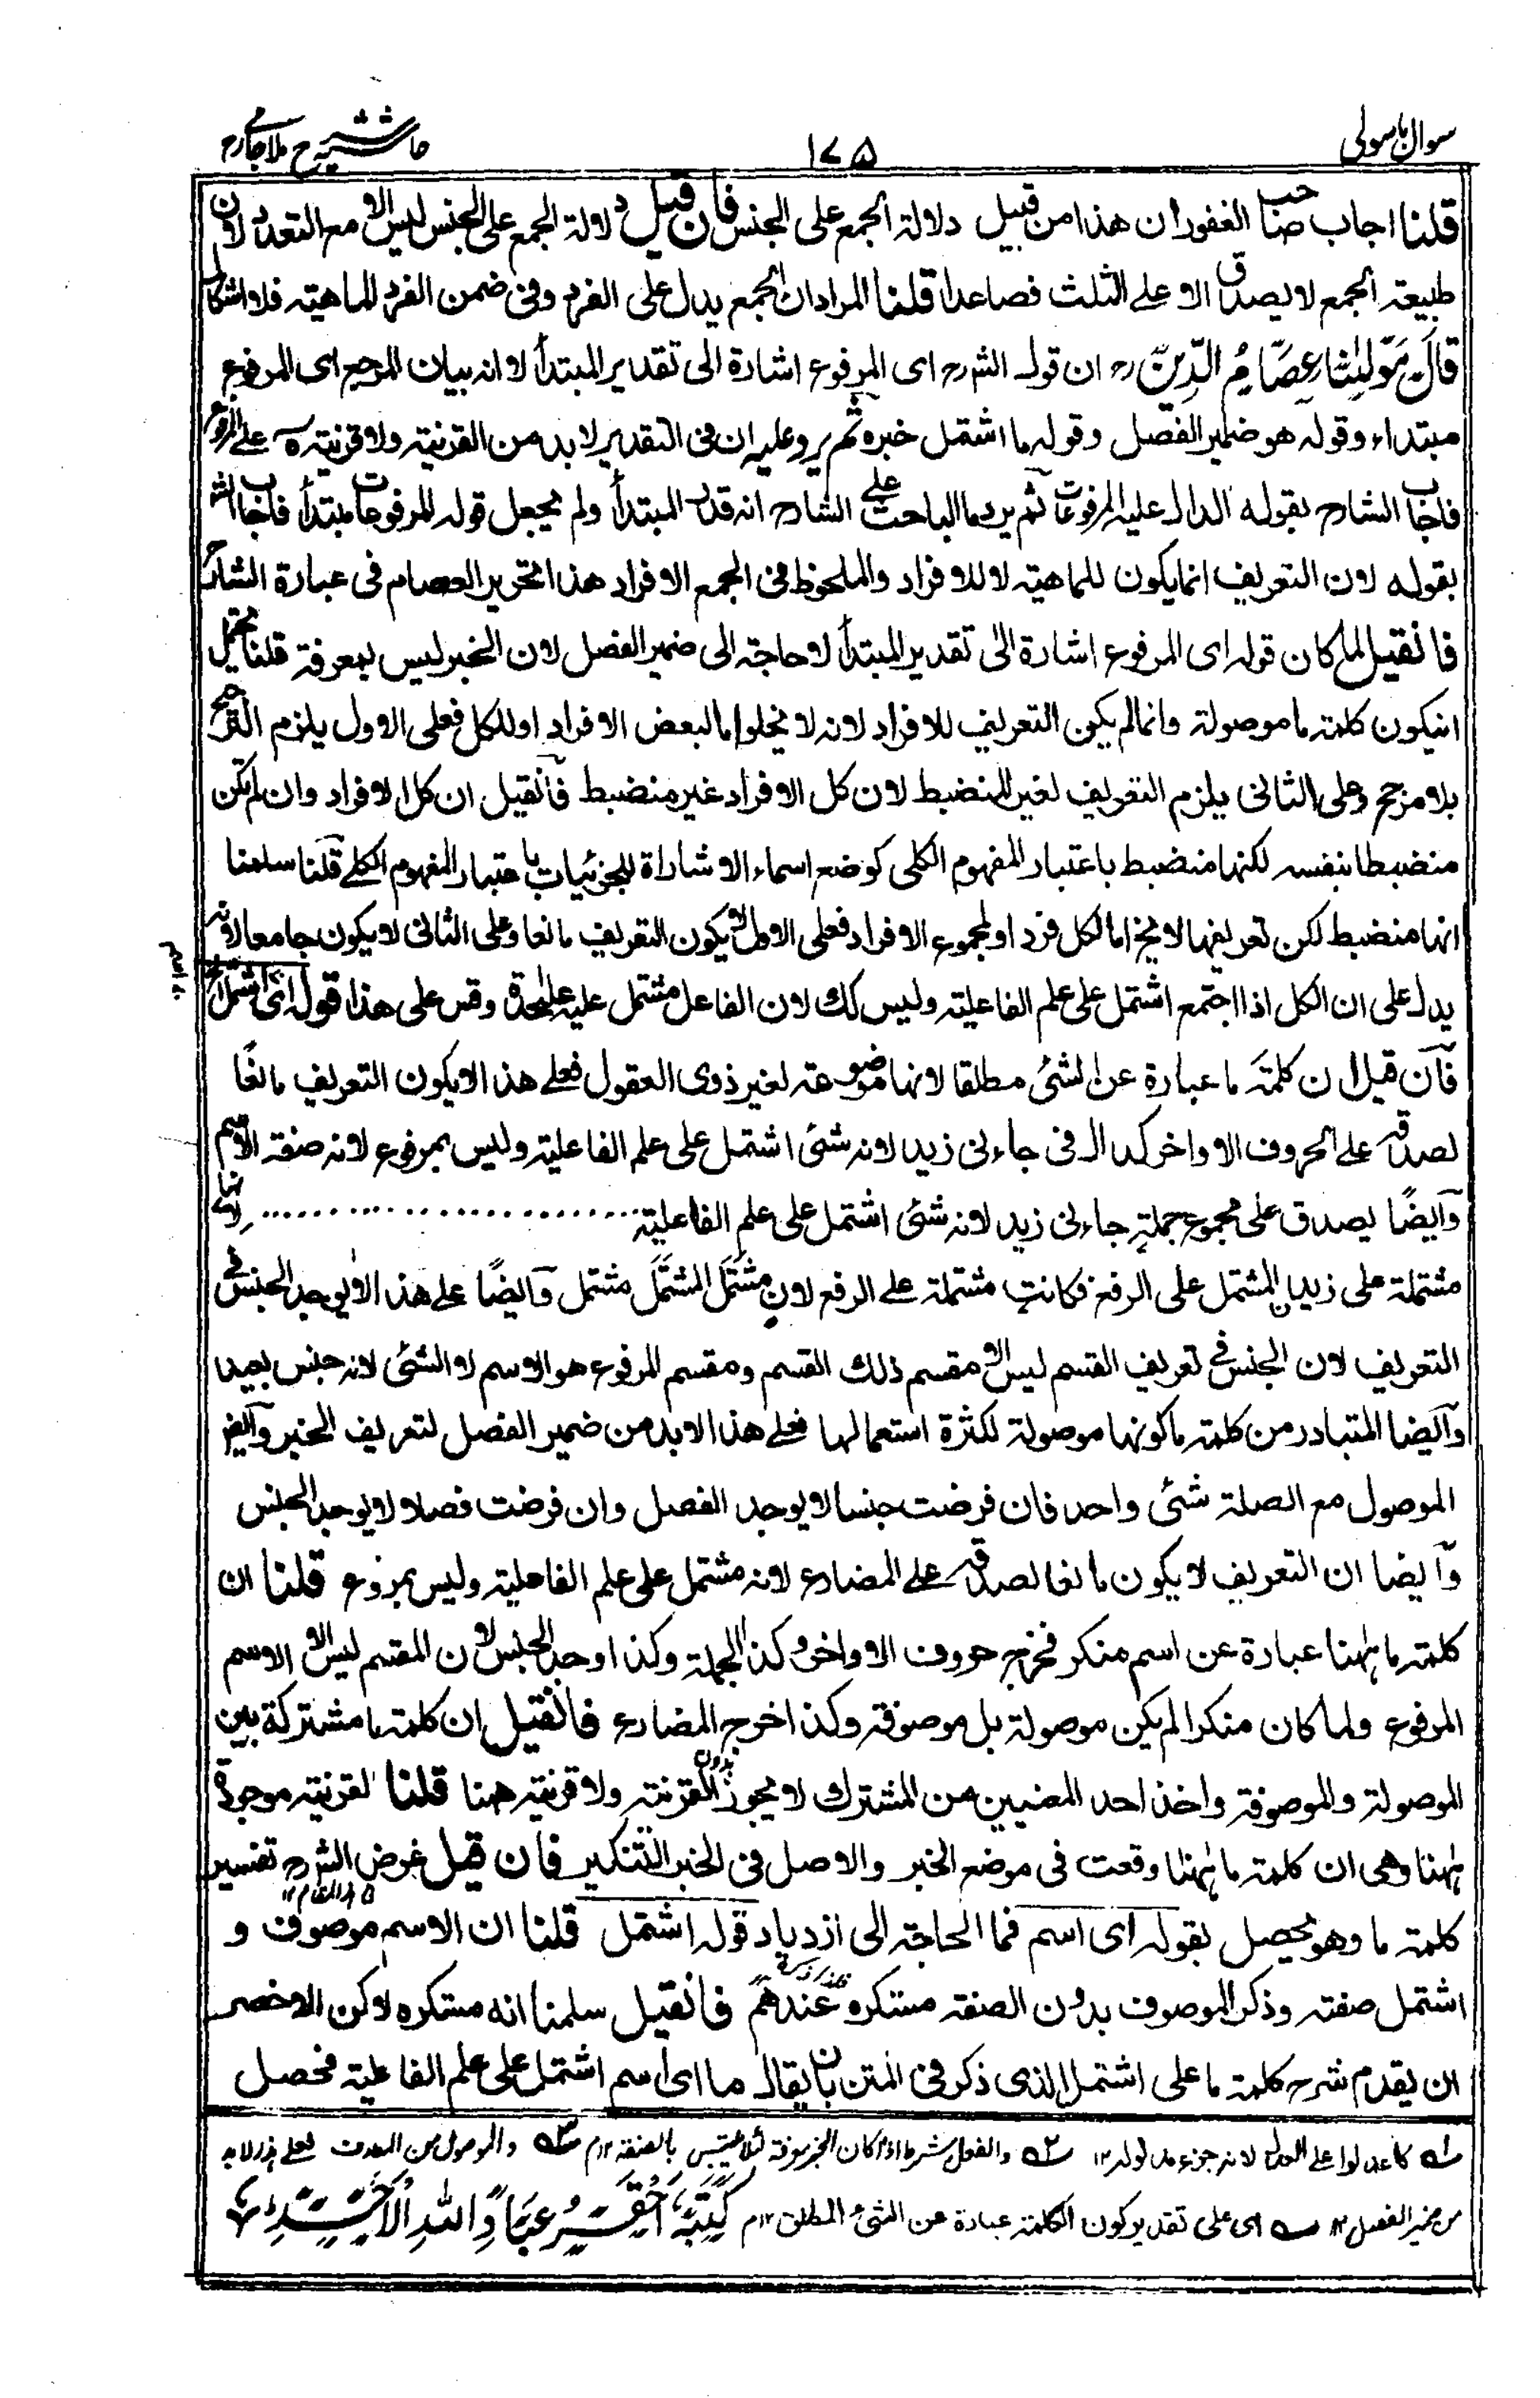 سوال باسولی
١٧٥
حاشیہ شرح ملا جامی رح
قلنا اجاب صاحب الغفور ان هذا من قبيل دلالة الجمع على الجنس فان قيل دلالة الجمع على الجنس ليس الا مع التعدد لان
طبيعة الجمع لا يصدق الا على الثلث فصاعدا قلنا المراد ان الجمع يدل على الفرد وفى ضمن الفرد للماهية فلا اشكال
قال مولينا عصام الدين رح ان قوله الشرح اى المرفوع اشارة الى تقدير المبتدأ لا انه بيان المرجع اى المرفوع
مبتداء وقوله هو ضمير الفصل وقوله ما اشتمل خبره ثم يرد عليه ان فى التقدير لا بد من القرينة ولا قرينة على المرفوع
فاجاب الشارح بقوله الدال عليه المرفوعات ثم يرد ما الباحث على الشارح انه قدر المبتدأ ولم يجعل قوله المرفوعات مبتدأ فاجاب الش
بقوله لان التعريف انما يكون للماهية لا للافراد والملحوظ فى الجمع الافراد هذا تحرير العصام فى عبارة الشارح
فانقيل لما كان قوله اى المرفوع اشارة الى تقدير المبتدأ لا حاجة الى ضمير الفصل لان الخبر ليس بمعرفة قلنا يحتمل
انيكون كلمة ما موصولة وانما لم يكن التعريف للافراد لانه لا يخلوا ما لبعض الافراد او للكل فعلى الاول يلزم الترجيح
بلا مرجح وعلى الثانى يلزم التعريف لغير المنضبط لان كل الافراد غير منضبط فانقيل ان كل الافراد وان لم تكن
منضبطا بنفسه لكنها منضبط باعتبار المفهوم الكلى كوضع اسماء الاشاراة للجزئيات باعتبار المفهوم الكلى قلنا سلمنا
انها منضبط لكن تعريفها لا يخ اما لكل فرد او لمجموع الافراد فعلى الاول لا يكون التعريف مانعا وعلى الثانى لا يكون جامعا لانه
يدل على ان الكل اذا اجتمع اشتمل على علم الفاعلية وليس كك لان الفاعل مشتمل عليه عليحدة وقس على هذا قوله اى اشتمل
فان قيل ان كلمة ما عبارة عن الشئ مطلقا لانها موضوعة لغير ذوى العقول فعلى هذا لا يكون التعريف مانعًا
لصدقه على الحروف الاواخر كدال فى جاءنى زيد لانه شئ اشتمل على علم الفاعلية وليس بمرفوع لانه صفة الاسم
وايضًا يصدق على مجموع جملة جاءنى زيد لانه شئ اشتمل على علم الفاعلية ........................ لانها
مشتملة على زيد المشتمل على الرفع فكانت مشتملة على الرفع لان مشتمل المشتمل مشتمل وايضًا على هذا لا يوجد الجنس فى
التعريف لان الجنس فى تعريف القسم ليس الا مقسم ذلك القسم ومقسم المرفوع هو الاسم لا الشئ لانه جنس بعيد
وايضا المتبادر من كلمة ما كونها موصولة لكثرة استعمالها فعلى هذا لا بد من ضمير الفصل لتعريف الخبر وايض
الموصول مع الصلة شئ واحد فان فرضت جنسا لا يوجد الفصل وان فرضت فصلا لا يوجد الجنس
وايضا ان التعريف لا يكون مانعا لصدقه على المضارع لانه مشتمل على علم الفاعلية وليس بمرفوع قلنا ان
كلمة ما ههنا عبارة عن اسم منكر فخرج حروف الاواخر وكذا الجملة وكذا وجد الجنس لان المقسم ليس الا الاسم
المرفوع ولما كان منكرا لم يكن موصولة بل موصوفة وكذا خرج المضارع فانقيل ان كلمة ما مشتركة بين
الموصولة والموصوفة واخذ احد المعنيين من المشترك لا يجوز بدون القرينة ولا قرينة ههنا قلنا القرينة موجودة
ههنا وهى ان كلمة ما ههنا وقعت فى موضع الخبر والاصل فى الخبر التنكير فان قيل غرض الشرح تفسير
كلمة ما وهو يحصل بقوله اى اسم فما الحاجة الى ازدياد قوله اشتمل قلنا ان الاسم موصوف و
اشتمل صفته وذكر الموصوف بدون الصفة مستكره عندهم فانقيل سلمنا انه مستكره لاكن الاخصر
ان يقدم شرح كلمة ما على اشتمل الذى ذكر فى المتن بان يقال ما اى اسم اشتمل على علم الفاعلية فحصل
لانه جزء ١٢ والفصل شرط اذا كان الخبر معرفة لئلا يلتبس بالصفة ١٢م والموصول من المعرفة فعلى هذا لا بد
من ضمير الفصل ١٢ اى على تقدير كون الكلمة عبارة عن الشئ المطلق ١٢م كتبه احقر عباد الله الاحد